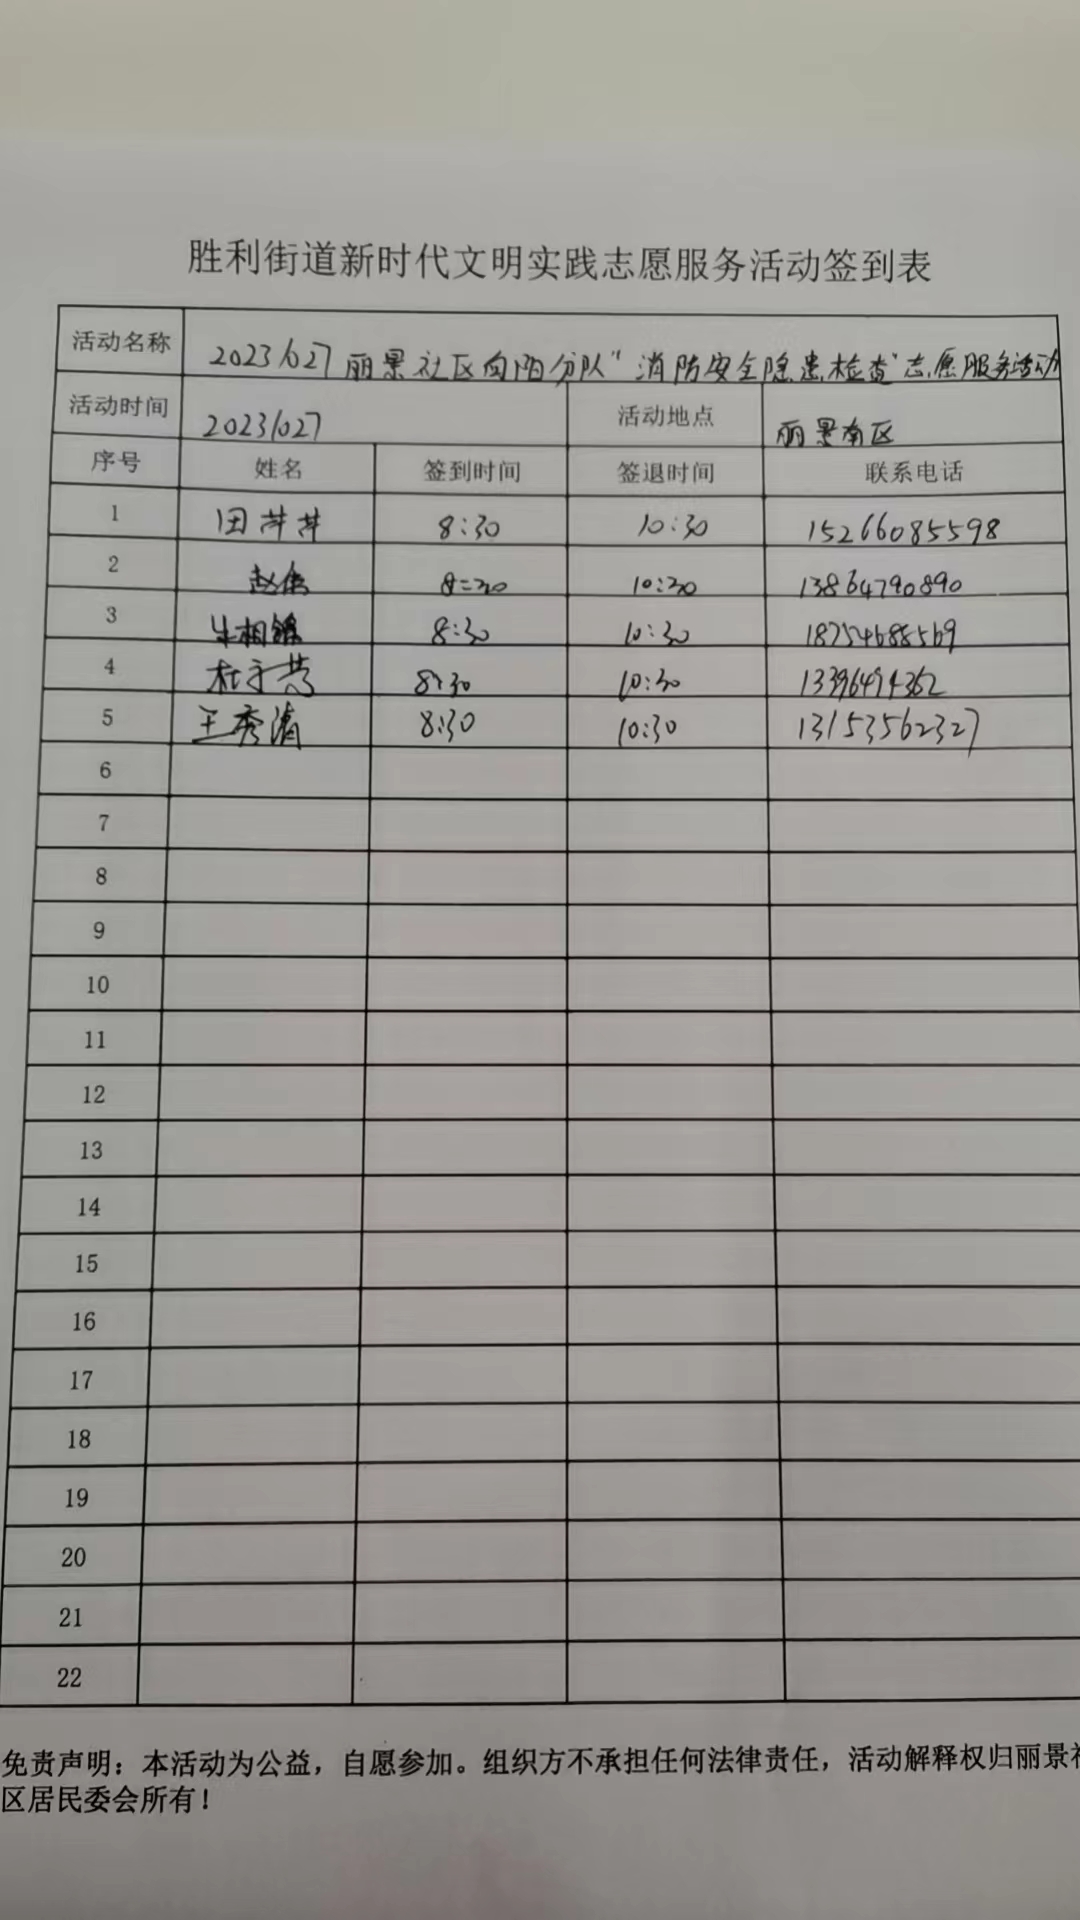 胜利街道新时代文明实践志愿服务活动签到表
活动名称 20231027丽景社区向阳分队“消防安全隐患检查”志愿服务活动
活动时间 20231027 活动地点 丽景南区
序号 姓名 签到时间 签退时间 联系电话
1 田芹芹 8:30 10:30 15266085598
2 赵 8:30 10:30 13864790890
3 牛相 8:30 10:30 18754688569
4 杜 8:30 10:30 13396494362
5 王秀清 8:30 10:30 13153562327
6
7
8
9
10
11
12
13
14
15
16
17
18
19
20
21
22
免责声明：本活动为公益，自愿参加。组织方不承担任何法律责任，活动解释权归丽景社
区居民委会所有！